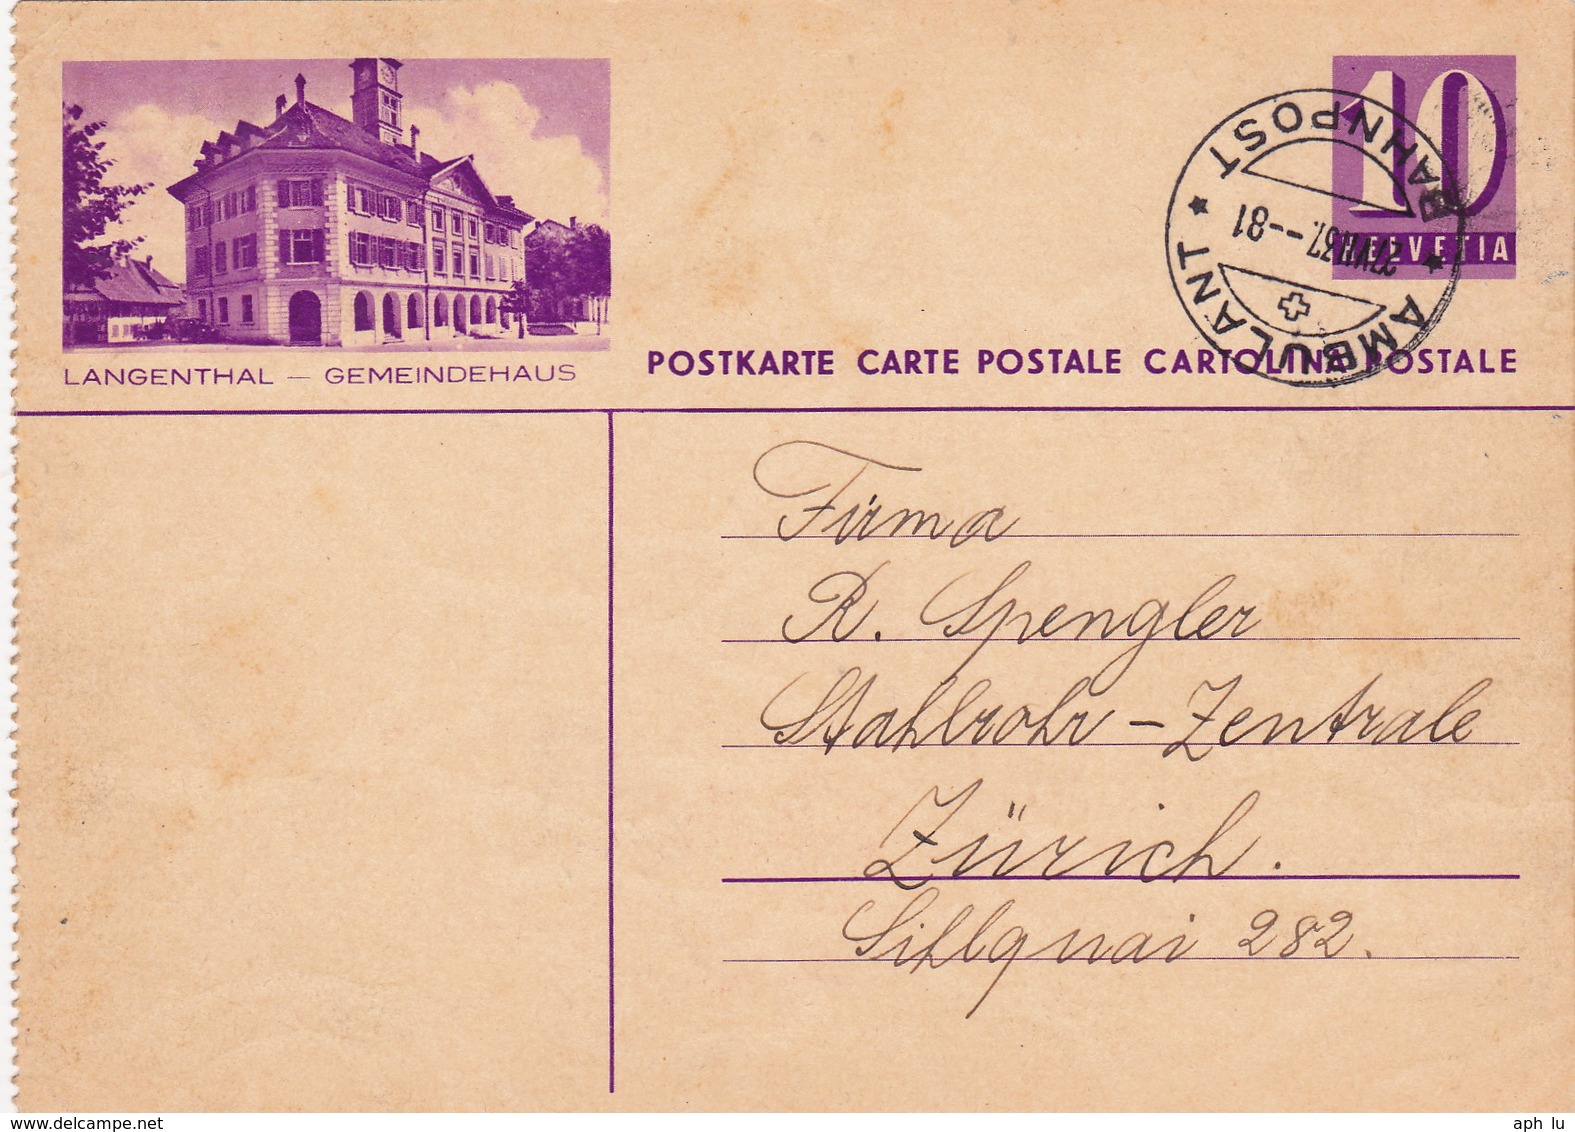 10
HELVETIA
AMBULANT ★ BAHNPOST ★
27.VII.37.--81
LANGENTHAL – GEMEINDEHAUS
POSTKARTE CARTE POSTALE CARTOLINA POSTALE
Firma
R. Spengler
Stahlrohr-Zentrale
Zürich.
Sihlquai 282.
www.delcampe.net
aph lu